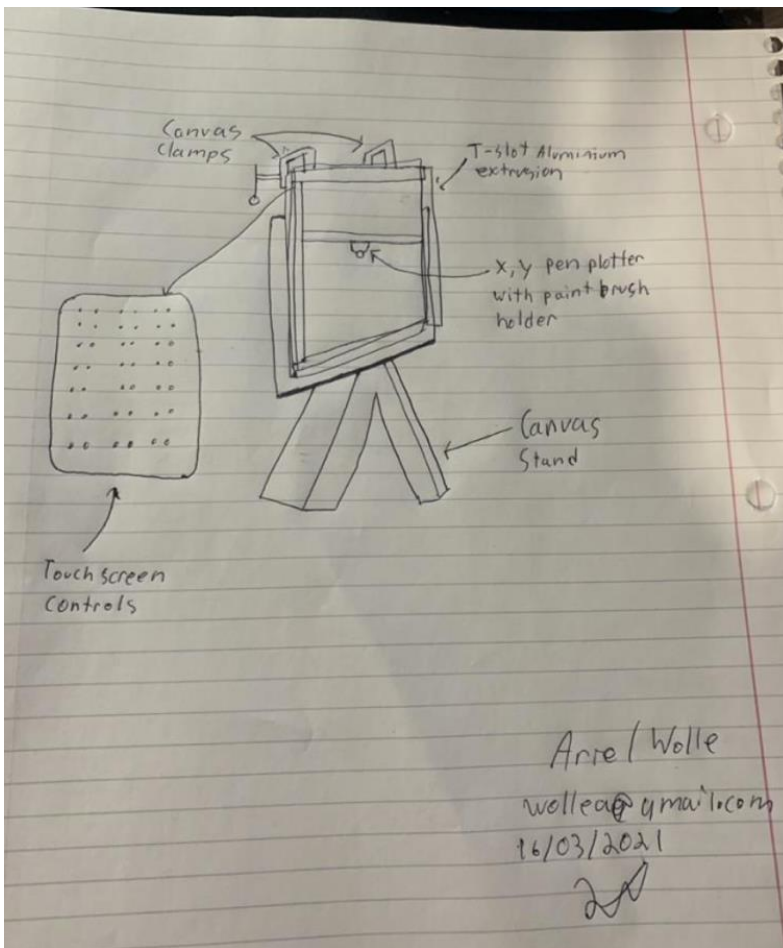 Canvas
Clamps
T-slot Aluminium
extrusion
x, y pen plotter
with paint brush
holder
Canvas
Stand
Touch screen
Controls
Arrel Wolle
wollea@gmail.com
16/03/2021